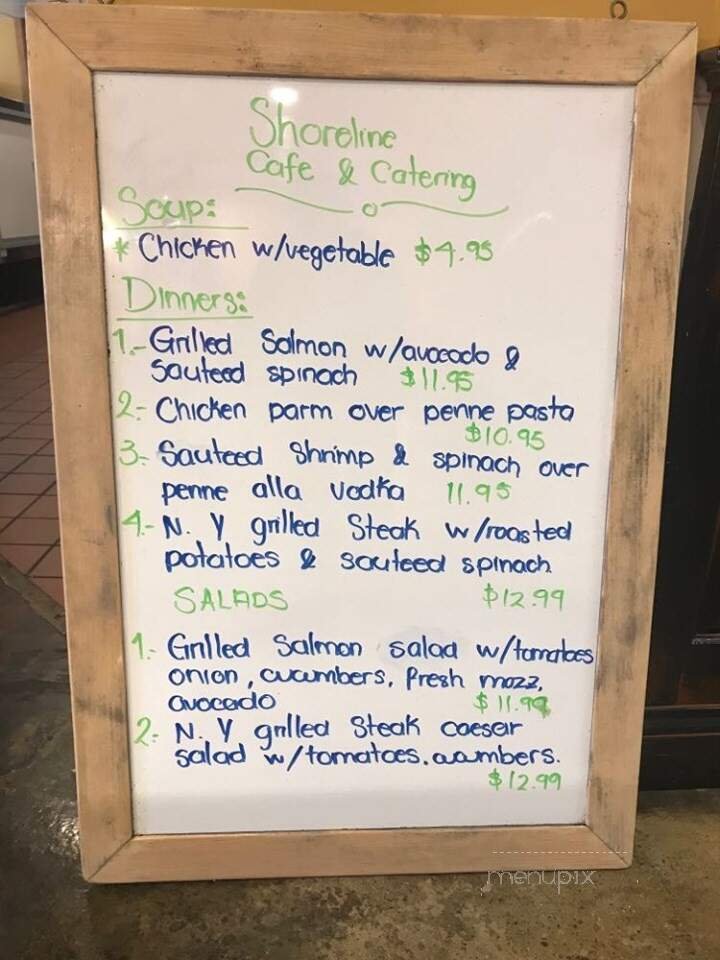 Shoreline
Cafe & Catering
Soup:
* Chicken w/vegetable $4.95
Dinners:
1.- Grilled Salmon w/avocado &
Sauteed spinach $11.95
2.- Chicken parm over penne pasta
$10.95
3.- Sauteed Shrimp & spinach over
penne alla vodka 11.95
4.- N. Y grilled Steak w/roasted
potatoes & sauteed spinach
SALADS $12.99
1.- Grilled Salmon salad w/tomatoes
onion, cucumbers, fresh mozz,
avocado $11.99
2.- N. Y grilled Steak caesar
salad w/tomatoes, cucumbers.
$12.99
menupix